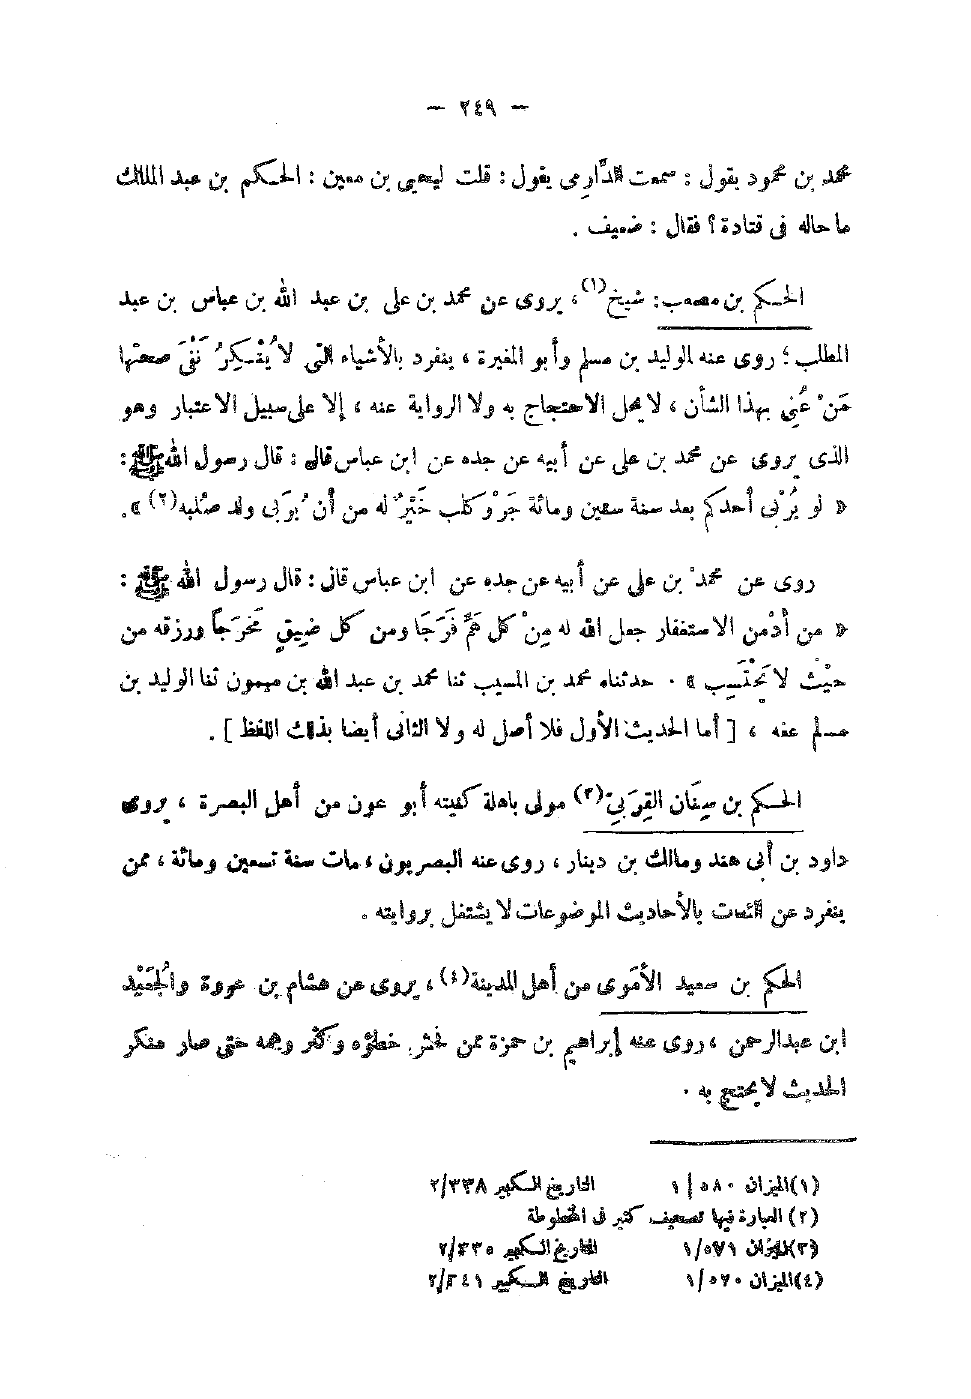 — ٢٤٩ —
محمد بن محمود يقول : سمعت الدَّارمى يقول : قلت ليحيى بن معين : الحكم بن عبد الملك
ما حاله فى قتادة ؟ فقال : ضعيف .
الحكم بن مصعب : شيخ(١) ، يروى عن محمد بن على بن عبد الله بن عباس بن عبد
المطلب ؛ روى عنه الوليد بن مسلم وأبو المغيرة ، ينفرد بالأشياء التى لا يُنْكِرُ نَفْىَ صحتها
مَنْ عُنِى بهذا الشأن ، لا يحل الاحتجاج به ولا الرواية عنه ، إلا على سبيل الاعتبار وهو
الذى يروى عن محمد بن على عن أبيه عن جده عن ابن عباس قال : قال رسول الله ﷺ :
« لو يُرَبِّى أحدكم بعد سنة ستين ومائة جَرْوَ كلب خَيْرٌ له من أن يُرَبى ولد صُلبه(٢) » .
روى عن محمد بن على عن أبيه عن جده عن ابن عباس قال : قال رسول الله ﷺ :
« من أدْمن الاستغفار جعل الله له مِنْ كل هَمٍّ فَرَجَا ومن كل ضيقٍ مخرَجاً ورزقه من
حيْثُ لا يَحْتَسِب » . حدثناه محمد بن المسيب ثنا محمد بن عبد الله بن ميمون ثنا الوليد بن
مسلم عنه ، [ أما الحديث الأول فلا أصل له ولا الثانى أيضا بذلك اللفظ ] .
الحكم بن سِنَان القِرَبىّ(٣) مولى باهلة كنيته أبو عون من أهل البصرة ، يروى
داود بن أبى هند ومالك بن دينار ، روى عنه البصريون ، مات سنة تسعين ومائة ، ممن
ينفرد عن الثقات بالأحاديث الموضوعات لا يشتغل بروايته .
الحكم بن سعيد الأمَوى من أهل المدينة(٤) ، يروى عن هشام بن عروة والجُعَيْد
ابن عبد الرحمن ، روى عنه إبراهيم بن حمزة ممن فحش خطؤه وكثر وهمه حتى صار منكر
الحديث لا يحتج به .
(١) الميزان ٥٨٠/١ التاريخ الكبير ٢/٣٣٨
(٢) العبارة فيها تصحيف كثير فى المخطوطة
(٣) الميزان ٥٧١/١ التاريخ الكبير ٢/٣٣٥
(٤) الميزان ٥٧٠/١ التاريخ الكبير ٢/٣٤١